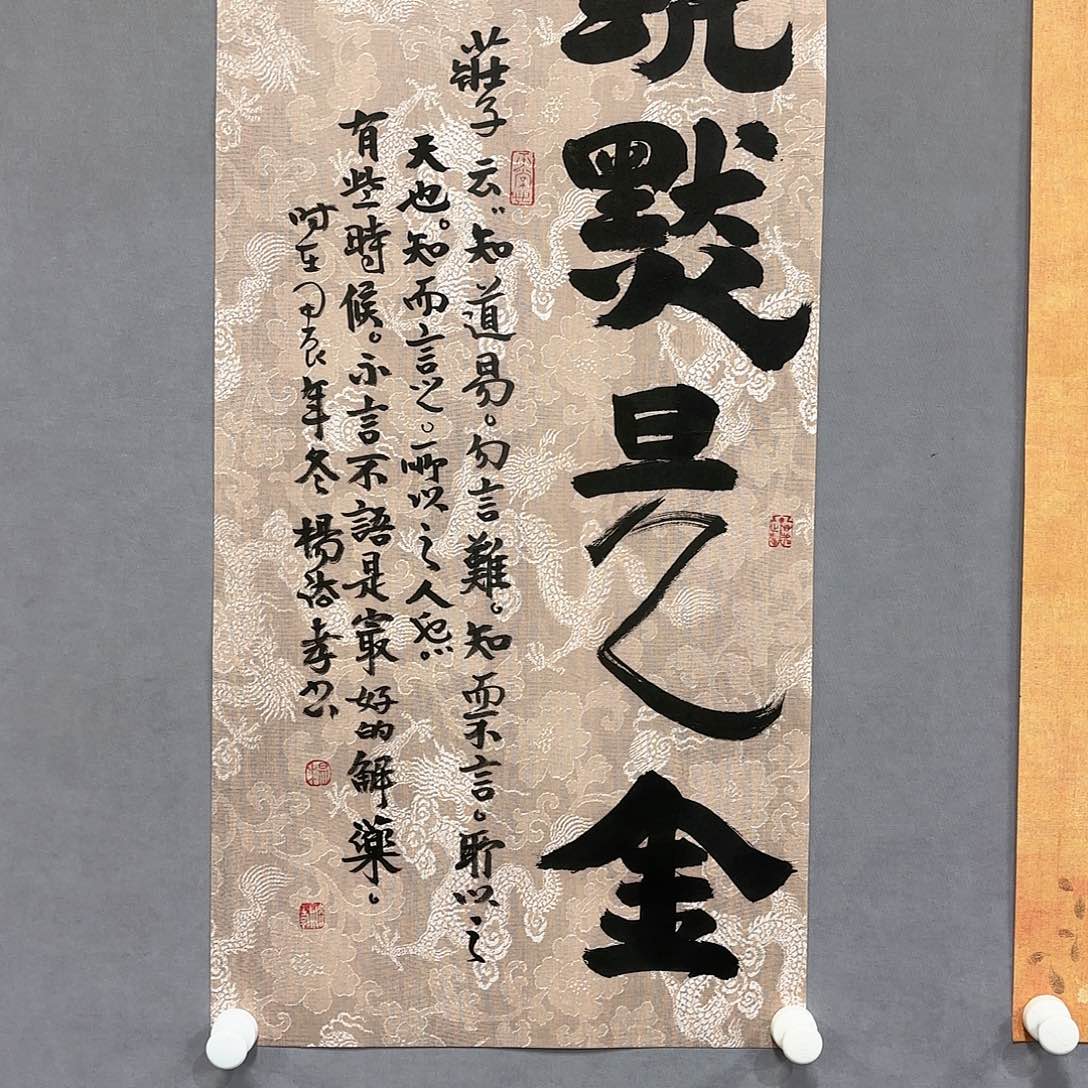 默是金
莊子云“知道易。勿言難。知而不言。所以之
天也。知而言之。所以之人也。”
有些時候。不言不語是最好的解藥。
時在甲辰年冬楊孝书